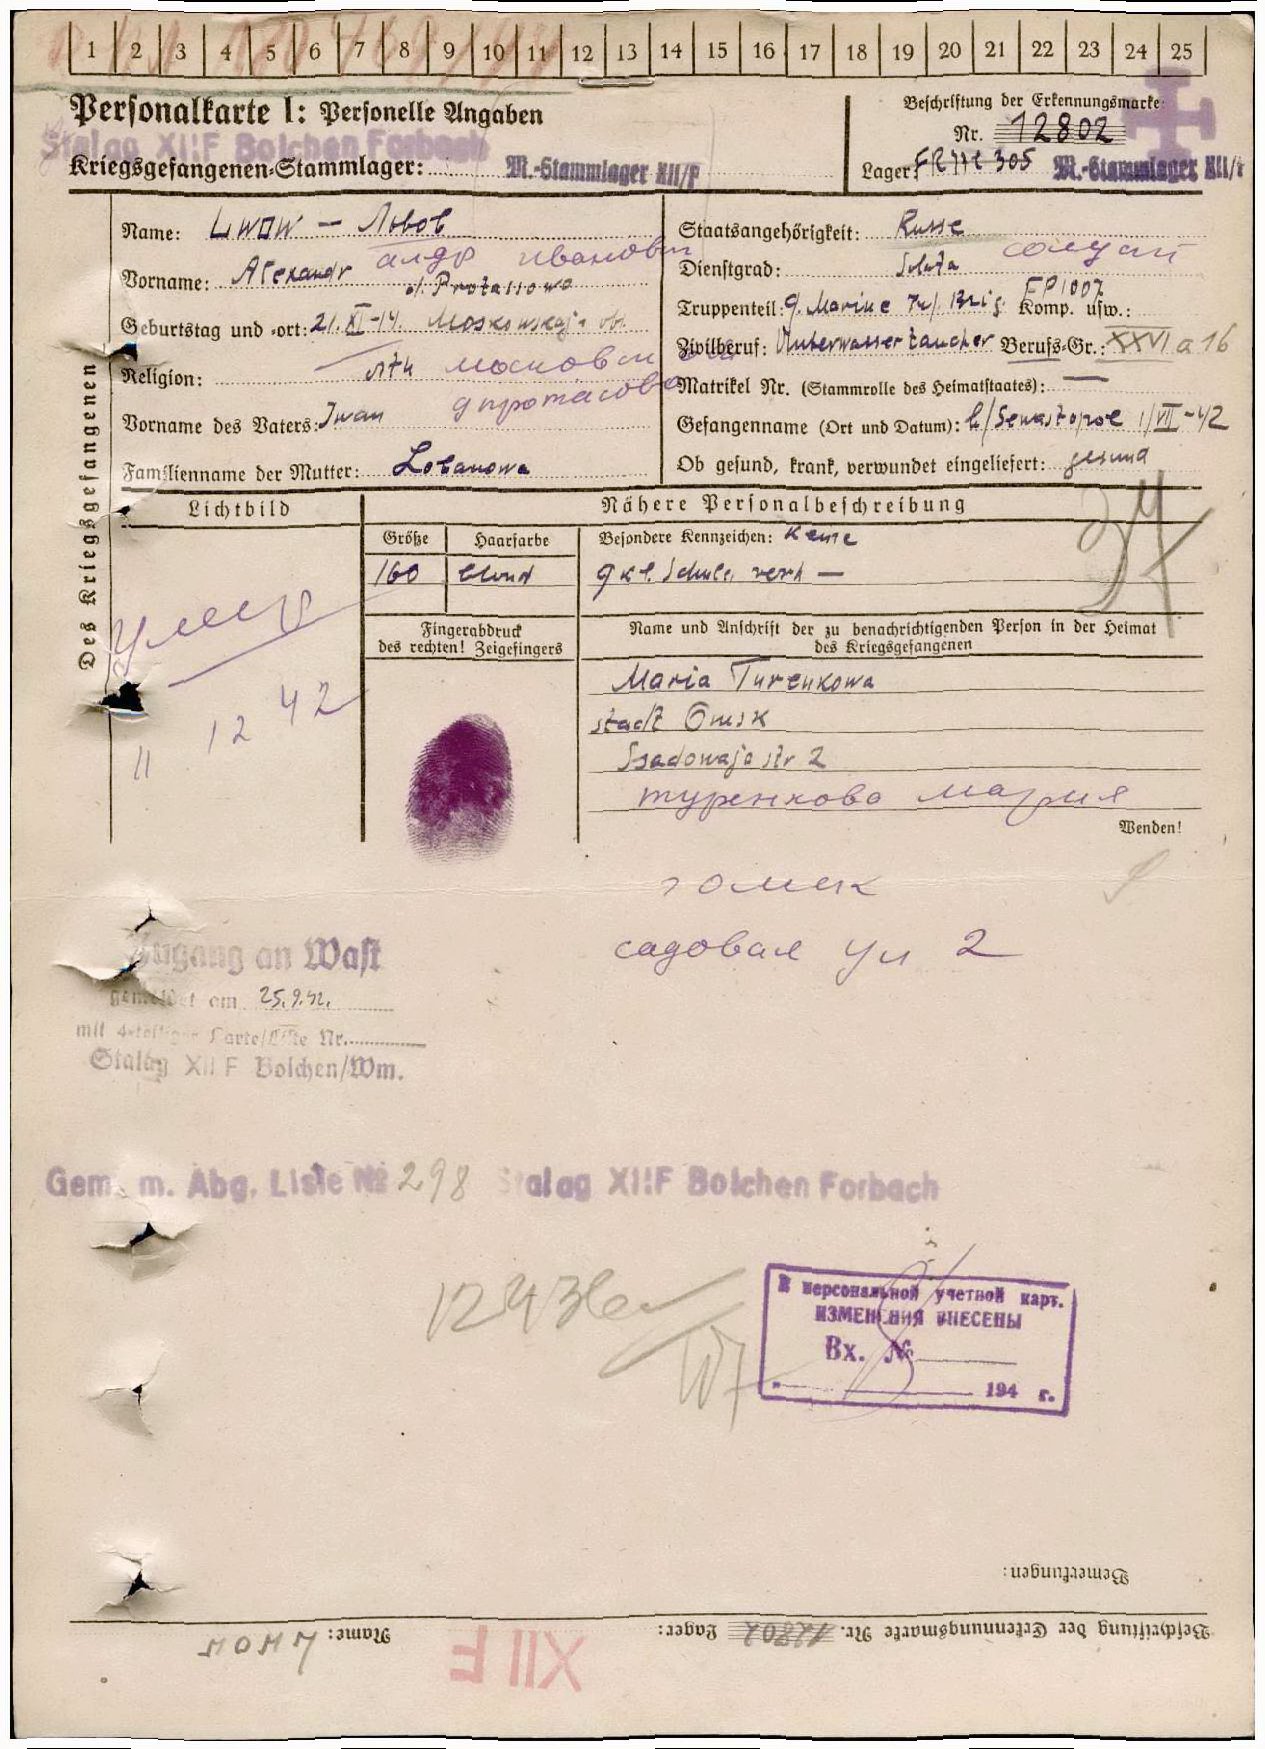 1 2 3 4 5 6 7 8 9 10 11 12 13 14 15 16 17 18 19 20 21 22 23 24 25
Personalkarte I: Personelle Angaben
Beschriftung der Erkennungsmarke:
Stalag XII F Bolchen Forbach
Nr. 12802
Kriegsgefangenen-Stammlager: M.-Stammlager XII/F
Lager: 305 M.-Stammlager XII/
Des Kriegsgefangenen
Name: Lwow — Львов
Staatsangehörigkeit: Russe
алдр иванович
Vorname: Alexandr
Dienstgrad: Soldat солдат
d. Protassowo
Truppenteil: 9. Marine Inf. Brig. Komp. usw.: FP 1007
Geburtstag und -ort: 21. XI-14. Moskowskaja ob.
Zivilberuf: Unterwassertaucher Berufs-Gr.: XXVI a 16
Religion: московск
Matrikel Nr. (Stammrolle des Heimatstaates): —
д протасово
Vorname des Vaters: Iwan
Gefangenname (Ort und Datum): b/Sewastopol 1/VII-42
Familienname der Mutter: Lobanowa
Ob gesund, krank, verwundet eingeliefert: gesund
Lichtbild
Nähere Personalbeschreibung
Größe
Haarfarbe
Besondere Kennzeichen: Keine
160
blond
9 kl. Schule, verh —
Fingerabdruck
des rechten! Zeigefingers
Name und Anschrift der zu benachrichtigenden Person in der Heimat
des Kriegsgefangenen
умер
11 12 42
Maria Turenkowa
stadt Omsk
Ssadowaja str 2
туренкова мария
Wenden!
г омск
садовая ул 2
Zugang an Wast
gemeldet am 25.9.42.
mit 4-teiliger Karte/Liste Nr.
Stalag XII F Bolchen/Wm.
Gem. m. Abg. Liste № 298 Stalag XII F Bolchen Forbach
В персональной учетной карт.
ИЗМЕНЕНИЯ ВНЕСЕНЫ
Вх. №
194 г.
Bemerkungen:
Beschriftung der Erkennungsmarke Nr. 12802 Lager: XII F Name: Lwow